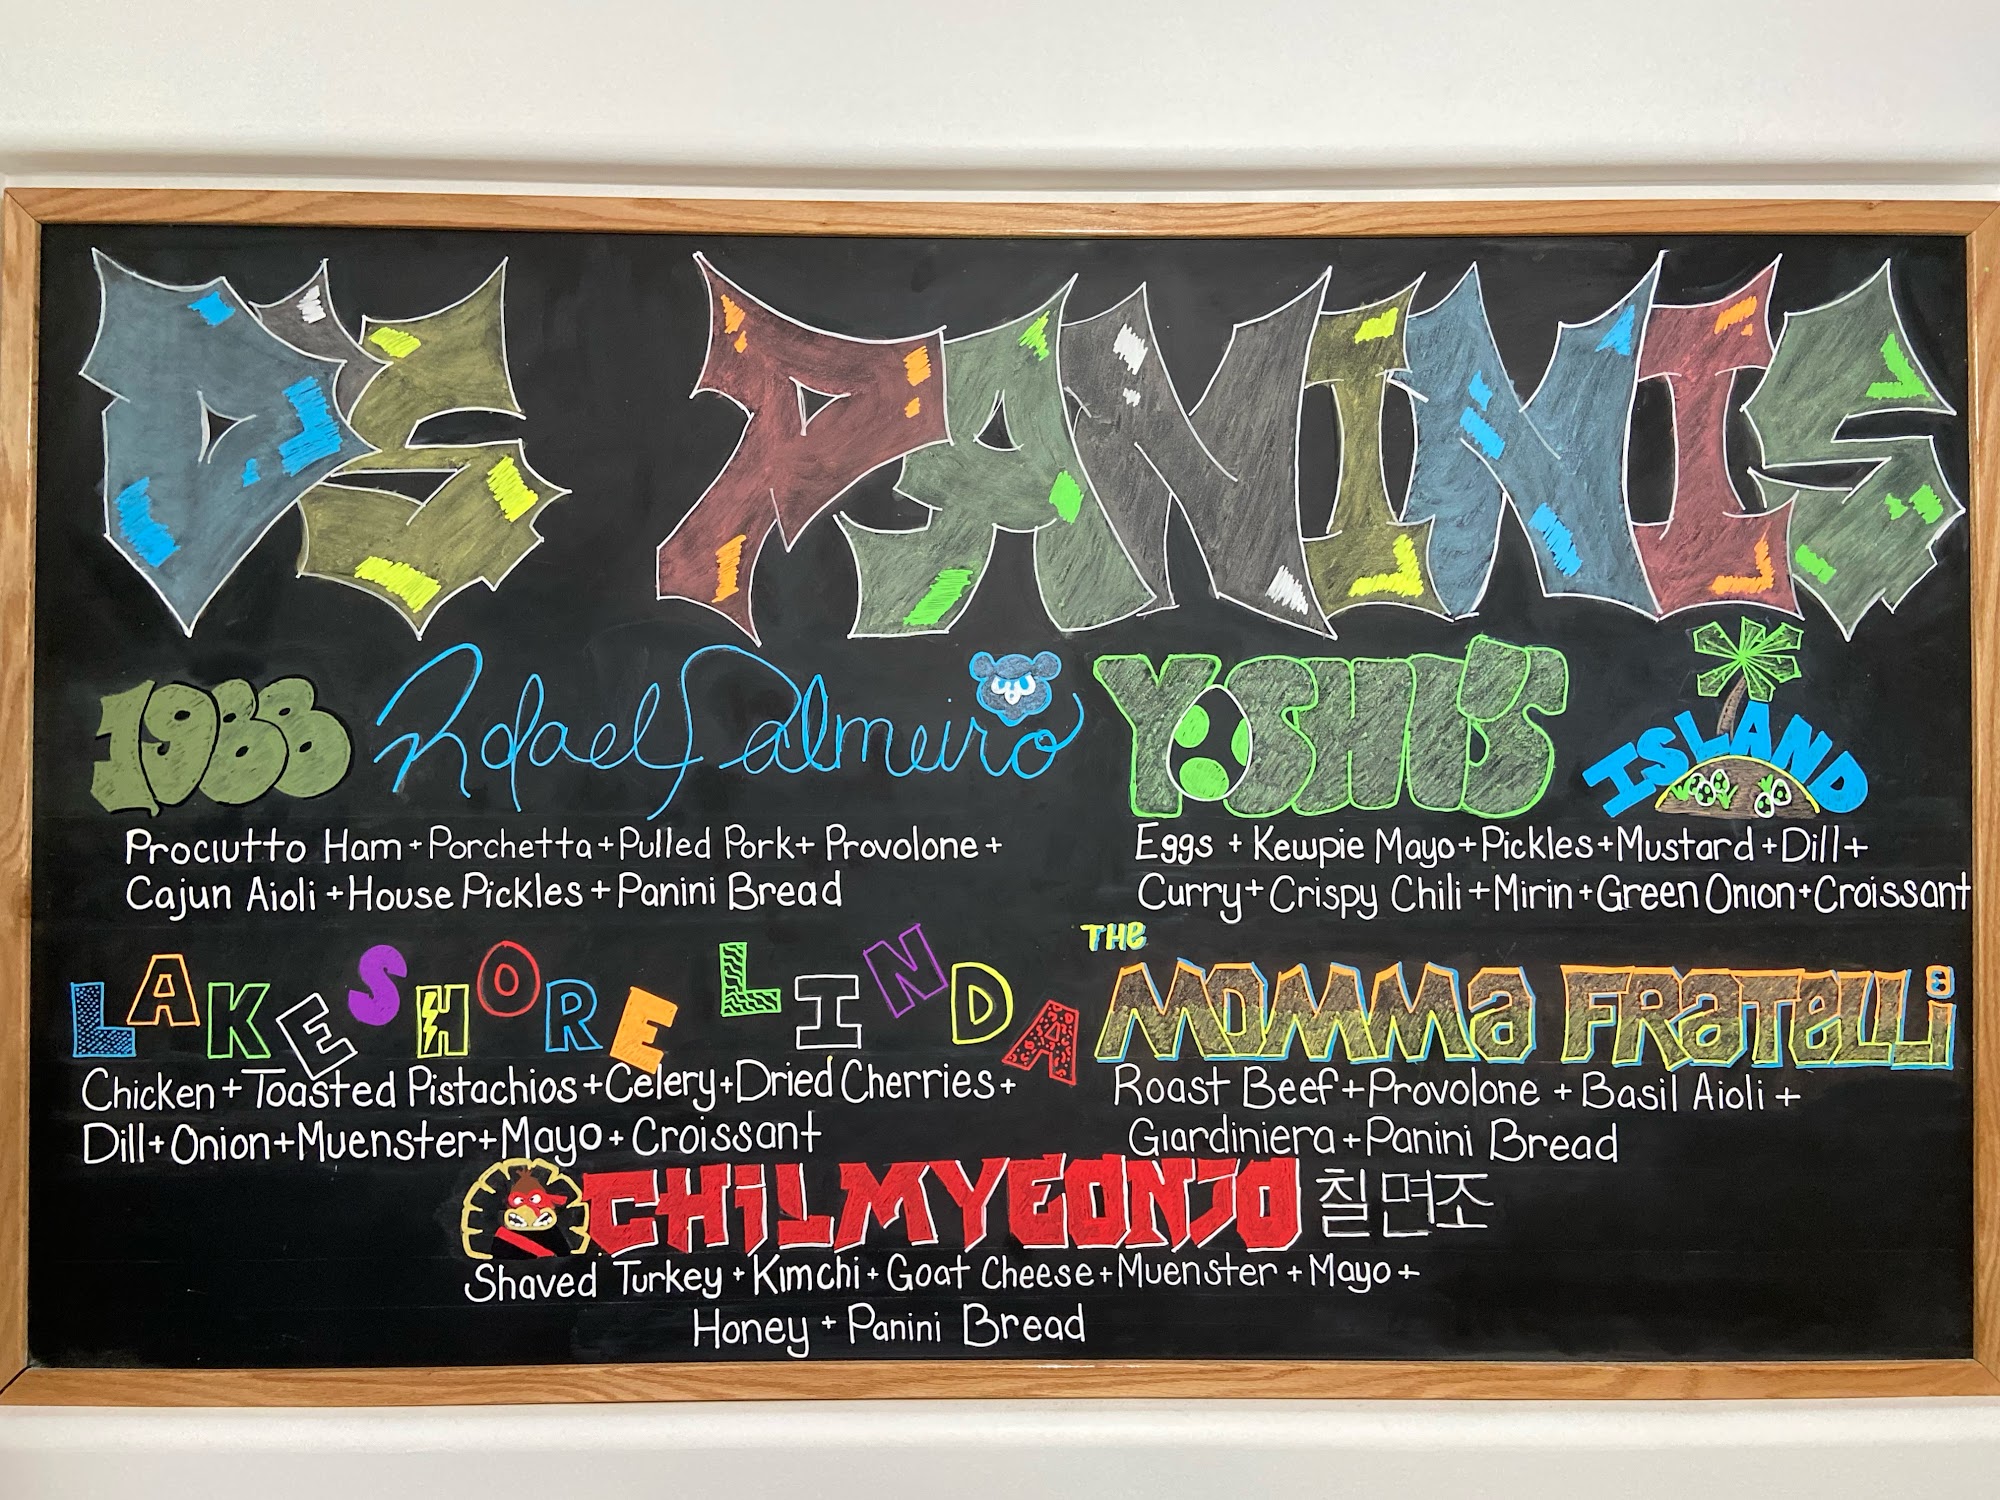 D'S PANINIS
1988 Rafael Palmeiro
Prociutto Ham + Porchetta + Pulled Pork + Provolone +
Cajun Aioli + House Pickles + Panini Bread
YOSHI'S ISLAND
Eggs + Kewpie Mayo + Pickles + Mustard + Dill +
Curry + Crispy Chili + Mirin + Green Onion + Croissant
LAKE SHORE LINDA
Chicken + Toasted Pistachios + Celery + Dried Cherries +
Dill + Onion + Muenster + Mayo + Croissant
THE
MOMMA FRATELLi
Roast Beef + Provolone + Basil Aioli +
Giardiniera + Panini Bread
CHiLMYEONJO 칠면조
Shaved Turkey + Kimchi + Goat Cheese + Muenster + Mayo +
Honey + Panini Bread